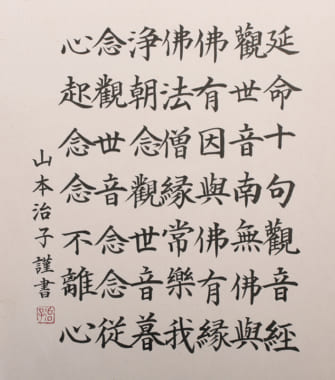 延命十句觀音經
觀世音南無佛與
佛有因與佛有縁
佛法僧縁常樂我
浄朝念觀世音暮
念觀世音念念從
心起念念不離心
山本治子謹書